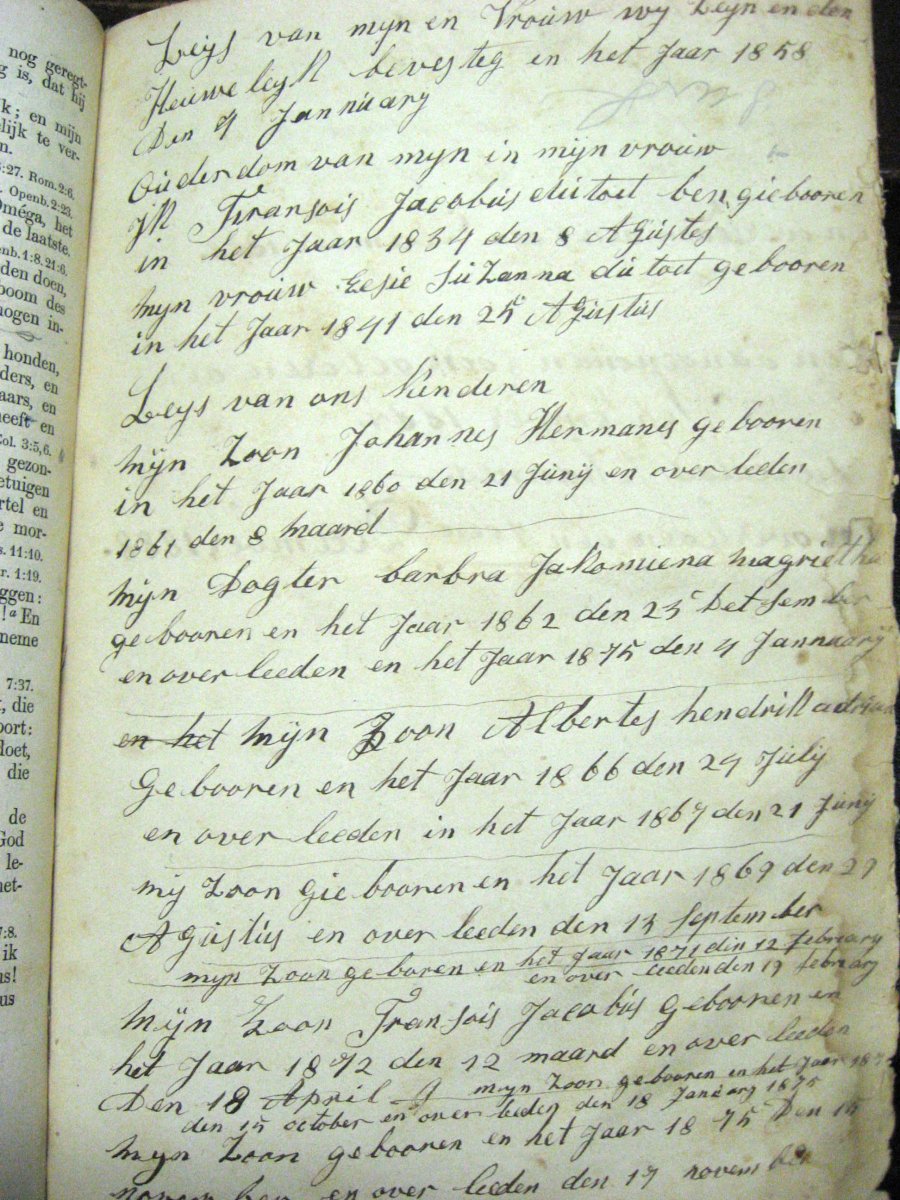 nog geregt-
g is, dat hij
k; en mijn
elijk te ver-
n.
5:27. Rom. 2:6.
Openb. 2:23.
Oméga, het
de laatste.
enb. 1:8. 21:6.
den doen,
boom des
mogen in-
honden,
ders, en
aars, en
heeft en
Col. 3:5,6.
gezon-
etuigen
rtel en
mor-
s. 11:10.
r. 1:19.
ggen:
! En
neme
7:37.
, die
oort:
doet,
die
de
God
le-
met-
7:8.
ik
us!
us
Leys van myn en Vrouw wy Zeyn en den
Heuweleyk bevesteg en het Jaar 1858
Den 7 Jannuary
Ouderdom van myn in mijn vrouw
Jk Fransois Jacobus du toet ben giebooren
in het Jaar 1834 den 8 Agustes
myn vrouw Elsie Suzanna du toet gebooren
in het Jaar 1841 den 25 Agustus
Leys van ons kenderen
mijn Zoon Johannes Hermanes gebooren
in het Jaar 1860 den 21 Junij en over leeden
1861 den 8 maard
mijn Dogter barbra Jakomiena magrietha
gebooren en het Jaar 1862 den 25 Detsember
en over leeden en het Jaar 1875 den 4 Jannuarij
en het mijn Zoon Albertes hendrik adrian
Gebooren en het Jaar 1866 den 24 Julij
en over leeden in het Jaar 1867 den 21 Junij
mij Zoon Giebooren en het Jaar 1869 den 29
Agustus en over leeden den 13 September
myn Zoon geboren en het Jaar 1871 din 12 february
en over leeden den 19 february
mijn Zoon Fransois Jacobus Gebooren en
het Jaar 1872 den 12 maard en over leeden
Den 18 April
myn Zoon gebooren en het Jaar
den 15 october en over leden den 18 January 1875
myn Zoon gebooren en het Jaar 1875 Den 15
novem ber en over leeden den 17 november